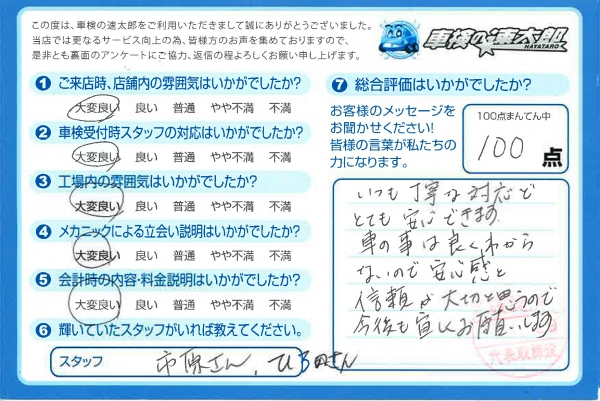 この度は、車検の速太郎をご利用いただきまして誠にありがとうございました。
当店では更なるサービス向上の為、皆様方のお声を集めておりますので、
是非とも裏面のアンケートにご協力、返信の程よろしくお願い申し上げます。
車検の速太郎
HAYATARO
1 ご来店時、店舗内の雰囲気はいかがでしたか?
大変良い 良い 普通 やや不満 不満
2 車検受付時スタッフの対応はいかがでしたか?
大変良い 良い 普通 やや不満 不満
3 工場内の雰囲気はいかがでしたか?
大変良い 良い 普通 やや不満 不満
4 メカニックによる立会い説明はいかがでしたか?
大変良い 良い 普通 やや不満 不満
5 会計時の内容・料金説明はいかがでしたか?
大変良い 良い 普通 やや不満 不満
6 輝いていたスタッフがいれば教えてください。
スタッフ 市原さん、ひろ田さん
7 総合評価はいかがでしたか?
お客様のメッセージを
お聞かせください!
皆様の言葉が私たちの
力になります。
100点まんてん中
100 点
いつも丁寧な対応で
とても安心できます。
車の事は良くわから
ないので安心感と
信頼が大切と思うので
今後も宜しくお願いします
代表取締役